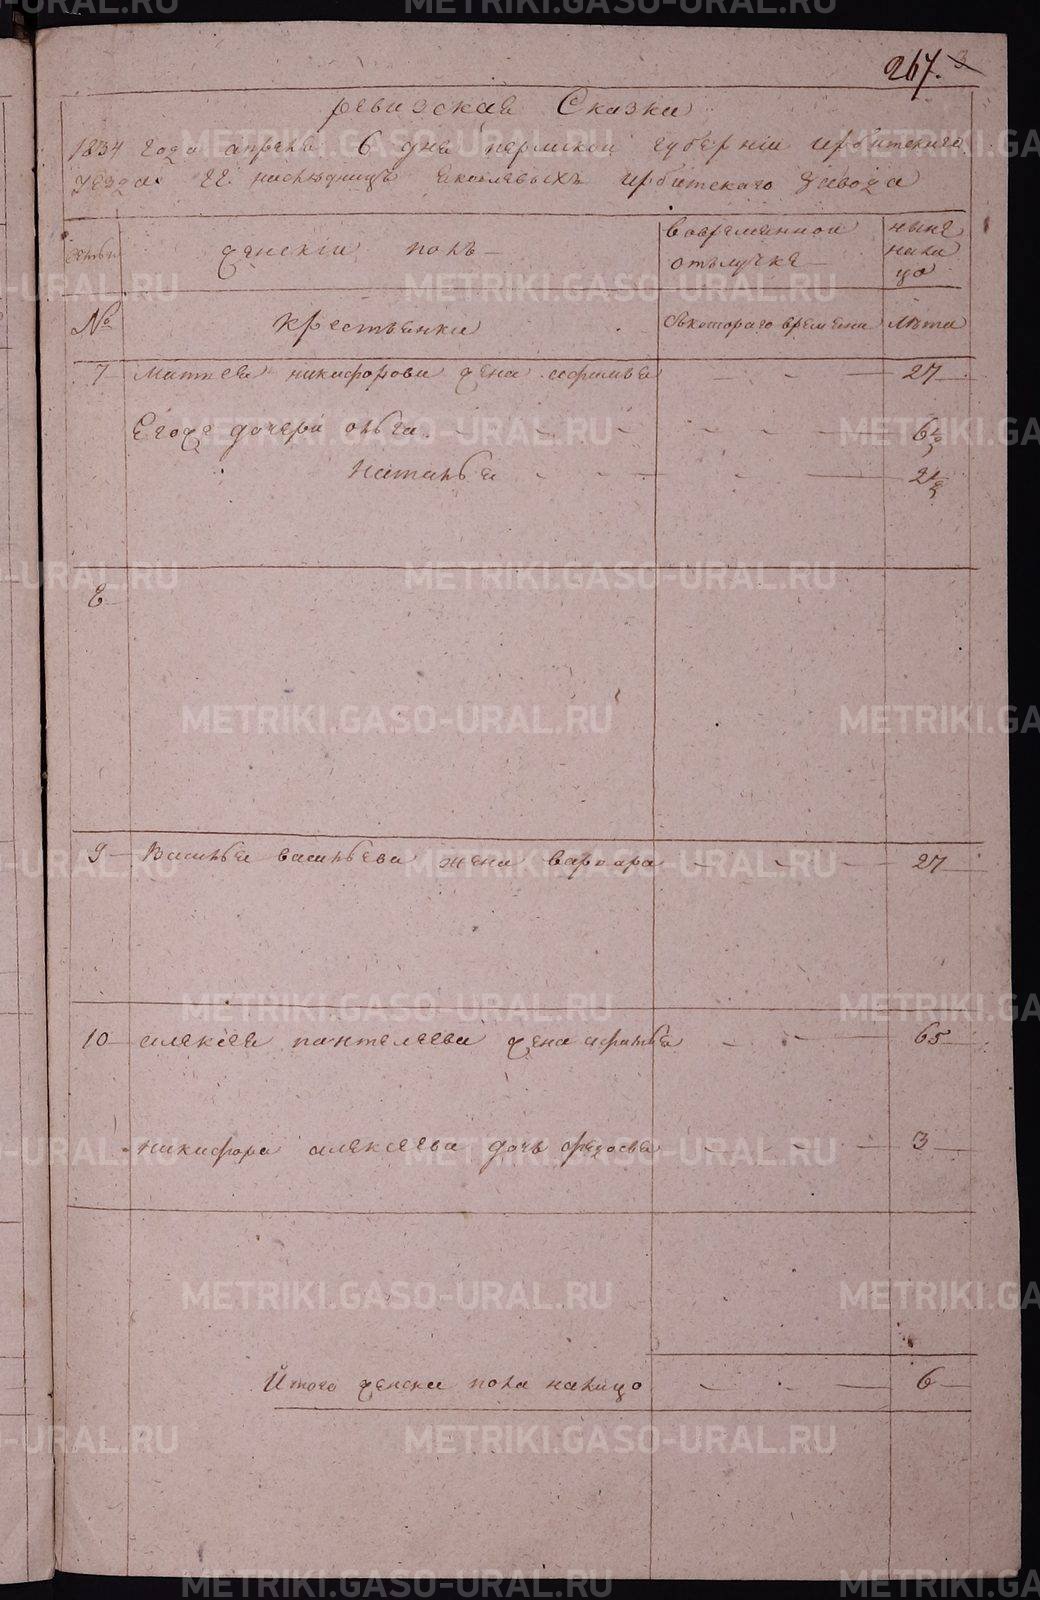 267. 3
ревизская Сказка
1834 года апреля 6 дня пермской губернiи ирбитскаго
уезда ГГ. наследницъ Яковлевыхъ ирбитскаго завода
семьи женскiи полъ вовременной отълучке ныне налицо
№ крестьянки Съкотораго времени Лета
7 Матвея никифорова жена 27
Егоже дочери ольга 6 1/2
наталья 2 1/2
8
9 Василья васильева жена варвара 27
10 алексея пантелеева жена 65
никифора алексеева дочь федосья 3
Итого женска пола налицо 6
METRIKI.GASO-URAL.RU